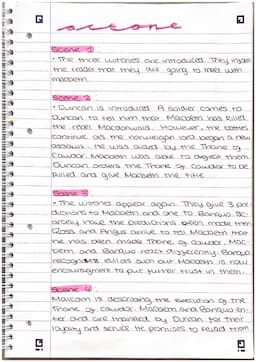 act one
Scene 1
• The three witches are introduced. They inform
the reader that they are going to meet with
macbeth.
Scene 2
• Duncan is introduced. A soldier comes to
Duncan to tell him that Macbeth has killed
the rebel Macdonwald. However, the battles
continue as the norweigan lord began a new
assault. He was aided by the Thane of
Cawdor. Macbeth was able to defeat them.
Duncan orders the Thane of Cawdor to be
killed and give Macbeth the title.
Scene 3
• The witches appear again. They give 3 pre-
dictions to Macbeth and one to Banquo. Sc-
arcely have the predictions been made then
Ross and Angus arrive to tell Macbeth that
he has been made Thane of Cawdor. Mac-
beth and Banquo react differently. Banquo
recognises evil as such but Macbeth is now
encouraged to put further trust in them.
Scene 4
Malcolm is describing the execution of the
Thane of Cawdor. Macbeth and Banquo en-
ter and are thanked by Duncan for their
loyalty and service. He promises to reward them